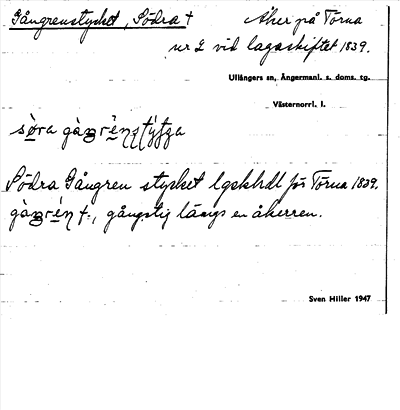 Gångrenstycket, Södra † Åker på Torna
nr 2 vid lagaskiftet 1839.
Ullångers sn, Ångermanl. s. doms. tg.
Västernorrl. l.
Södra Gångren stycket lgskhdl för Torna 1839.
†:, gångstig längs en åkerren.
Sven Hiller 1947